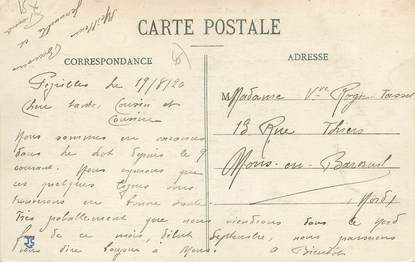 CARTE POSTALE
CORRESPONDANCE
ADRESSE
le 19/8/20
Chère tante, Cousin et
Cousine
Nous sommes en vacances
dans le Lot depuis le 9
courant. Nous espérons que
ces quelques lignes vous
trouverons en bonne santé.
Très probablement que nous viendrons dans le Nord
fin de ce mois, début Septembre, nous passerons
vous dire bonjour à Mons. A Bientôt
Meilleur
Madame Vve
13 Rue Thiers
Mons-en-Baroeul
Nord